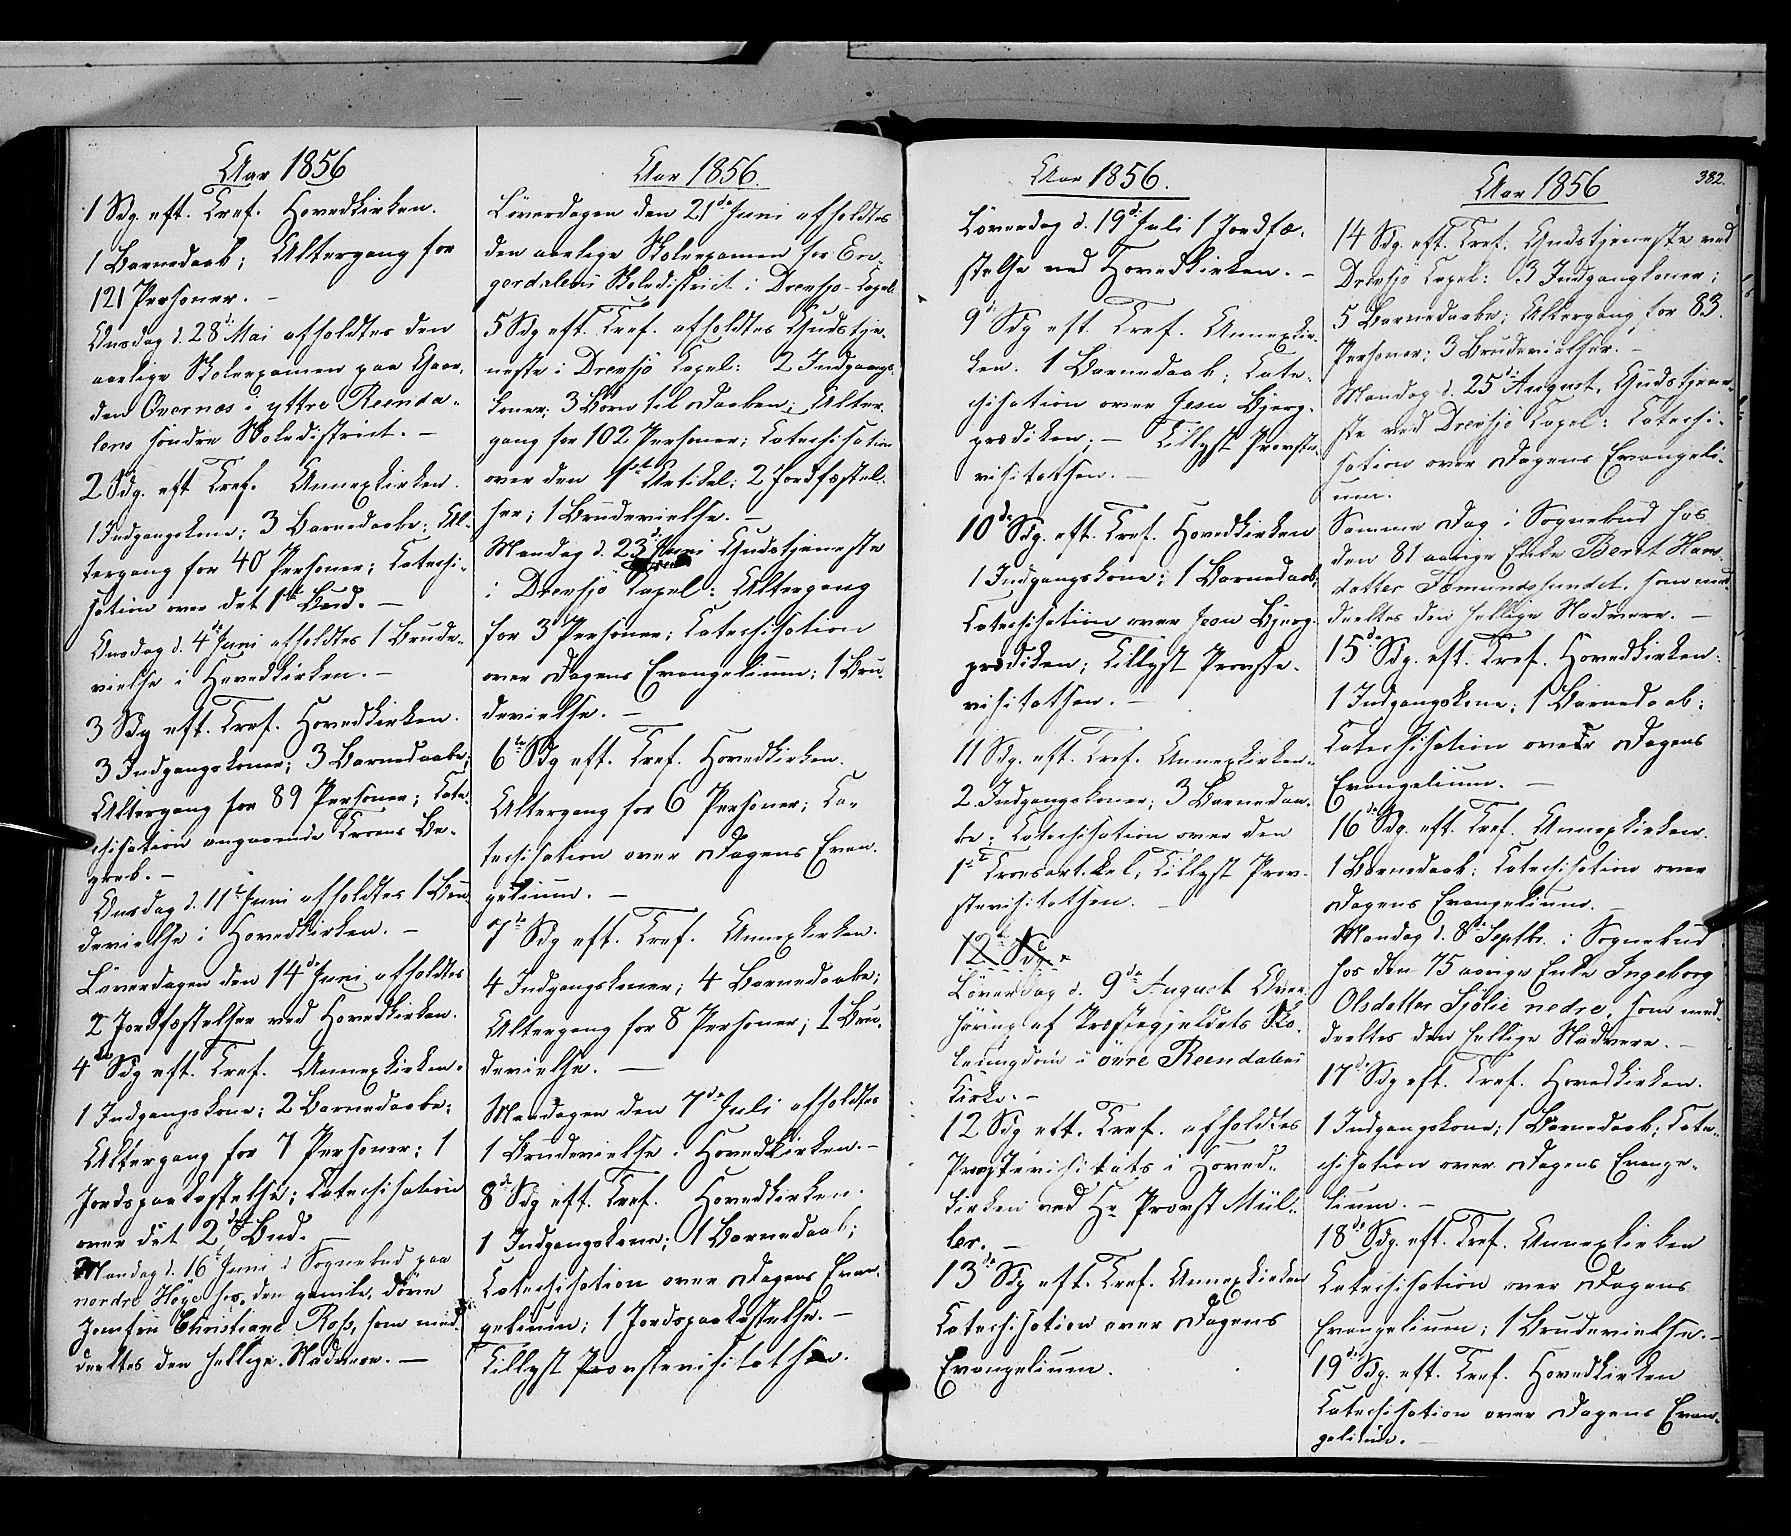 Aar 1856
1 Sdg. eft. Tref. Hovedkirken.
1 Barnedaab; Altergang for
121 Personer. –
Onsdag d. 28de Mai afholdtes den
aarlige Skoleexamen paa Gaar-
den Overnæs i yttre Reenda-
lens söndre Skoledistrict. –
2 Sdg. eft Tref. Annexkirken.
1 Indgangskone; 3 Barnedaabe; Al-
tergang for 40 Personer; Catechi-
sation over det 1ste Bud. –
Onsdag d. 4de Juni afholdtes 1 Brude-
vielse i Hovedkirken. –
3 Sdg eft. Tref. Hovedkirken.
3 Indgangskoner; 3 Barnedaabe;
Altergang for 89 Personer; Cate-
chisation angaaende Troens Be-
greb. –
Onsdag d. 11te Juni afholdtes 1 Bru-
devielse i Hovedkirken. –
Löverdagen den 14de Juni afholdtes
2 Jordfæstelser ved Hovedkirken.
4de Sdg eft. Tref. Annexkirken.
1 Indgangskone; 2 Barnedaabe;
Altergang for 7 Personer; 1
Jordspaakastelse; Catechisation
over det 2det Bud. –
Mandag d. 16de Juni i Sognebud paa
nordre Höye hos den gamle, döve
Jomfru Christiane Ross, som med-
deeltes den hellige Nadvere. –
Aar 1856.
Löverdagen den 21de Juni afholdtes
den aarlige Skoleexamen for En-
gerdalens Skoledistrict i Drevsjö-Capel
5 Sdg eft. Tref. afholdtes Gudstje-
neste i Drevsjö Capel: 2 Indgangs-
koner; 3 Börn til Daaben; Alter-
gang for 102 Personer; Catechisation
over den 1ste Artikel; 2 Jordfæstel-
ser; 1 Brudevielse. –
Mandag d. 23de Juni Gudstjeneste
i Drevsjö Capel: Altergang
for 3 Personer; Catechisation
over Dagens Evangelium; 1 Bru-
devielse. –
6te Sdg eft. Tref. Hovedkirken.
Altergang for 6 Personer; Ca-
techisation over Dagens Evan-
gelium. –
7de Sdg eft. Tref. Annexkirken.
4 Indgangskoner; 4 Barnedaabe;
Altergang for 8 Personer; 1 Bru-
devielse. –
Mandagen den 7de Juli afholdtes
1 Brudevielse i Hovedkirken. –
8de Sdg eft. Tref. Hovedkirken.
1 Indgangskone; 1 Barnedaab;
Catechisation over Dagens Evan-
gelium; 1 Jordspaakastelse. –
Tillyst Provstevisitatsen.
Aar 1856.
Löverdag d. 19de Juli 1 Jordfæ-
stelse ved Hovedkirken. –
9de Sdg eft. Tref. Annexkir-
ken. 1 Barnedaab; Cate-
chisation over Jesu Bjerg-
prædiken; – Tillyst Provste-
visitatsen. –
10de Sdg. eft. Tref. Hovedkirken
1 Indgangskone; 1 Barnedaab;
Catechisation over Jesu Bjerg-
prædiken; Tillyst Provste-
visitatsen. –
11 Sdg. eft. Tref. Annexkirken.
2 Indgangskoner; 3 Barnedaa-
be; Catechisation over den
1ste Troesartikel; Tillyst Prov-
stevisitatsen. –
12te Sdg.
Löverdag d. 9de August Over-
höring af Præstegjeldets Sko-
leungdom i övre Reendalens
Kirke. –
12 Sdg eft. Tref. afholdtes
Provstevisitats i Hoved-
kirken ved Hr Provst Mül-
ler. –
13de Sdg eft. Tref. Annexkirken
Catechisation over Dagens
Evangelium.
Aar 1856
382.
14 Sdg. eft. Tref. Gudstjeneste ved
Drevsjö Capel: 3 Indgangkoner;
5 Barnedaabe; Altergang for 83.
Personer; 3 Brudevielser. –
Mandag d. 25de August. Gudstjene-
ste ved Drevsjö Capel: Catechi-
sation over Dagens Evangeli-
um.
Samme Dag i Sognebud hos
den 81 aarige Enke Berit Hans-
datter Fæmundssundet, som med-
deeltes den hellige Nadvere. –
15de Sdg. eft. Tref. Hovedkirken.
1 Indgangskone; 1 Barnedaab;
Catechisation over Dagens
Evangelium. –
16de Sdg. eft. Tref. Annexkirken.
1 Barnedaab; Catechisation over
Dagens Evangelium. –
Mandag d. 8de Septbr. i Sognebud
hos den 75 aarige Enke Ingeborg
Olsdatter Sjölie nedre, som med-
deeltes den hellige Nadvere. –
17de Sdg eft. Tref. Hovedkirken.
1 Indgangskone; 1 Barnedaab; Cate-
chisation over Dagens Evange-
lium. –
18de Sdg. eft. Tref. Annexkirken
Catechisation over Dagens
Evangelium; 1 Brudevielse. –
19de Sdg. eft. Tref. Hovedkirken
Catechisation over Dagens Evan-
gelium. –